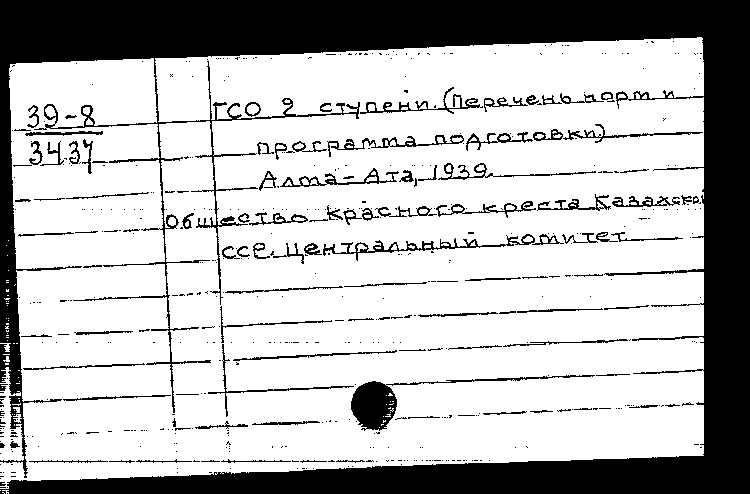 39-8
3437
ГСО 2 ступени. (Перечень норм и
программа подготовки)
Алма-Ата, 1939.
Общество Красного креста Казахской
ССР. Центральный комитет